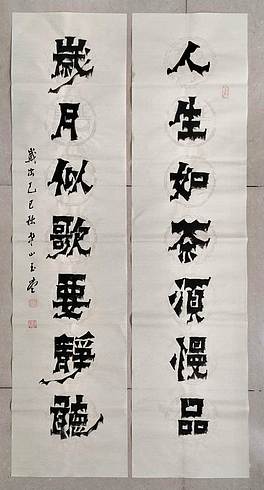 人生如茶須慢品
歲月似歌要靜聽
歲次乙巳秋